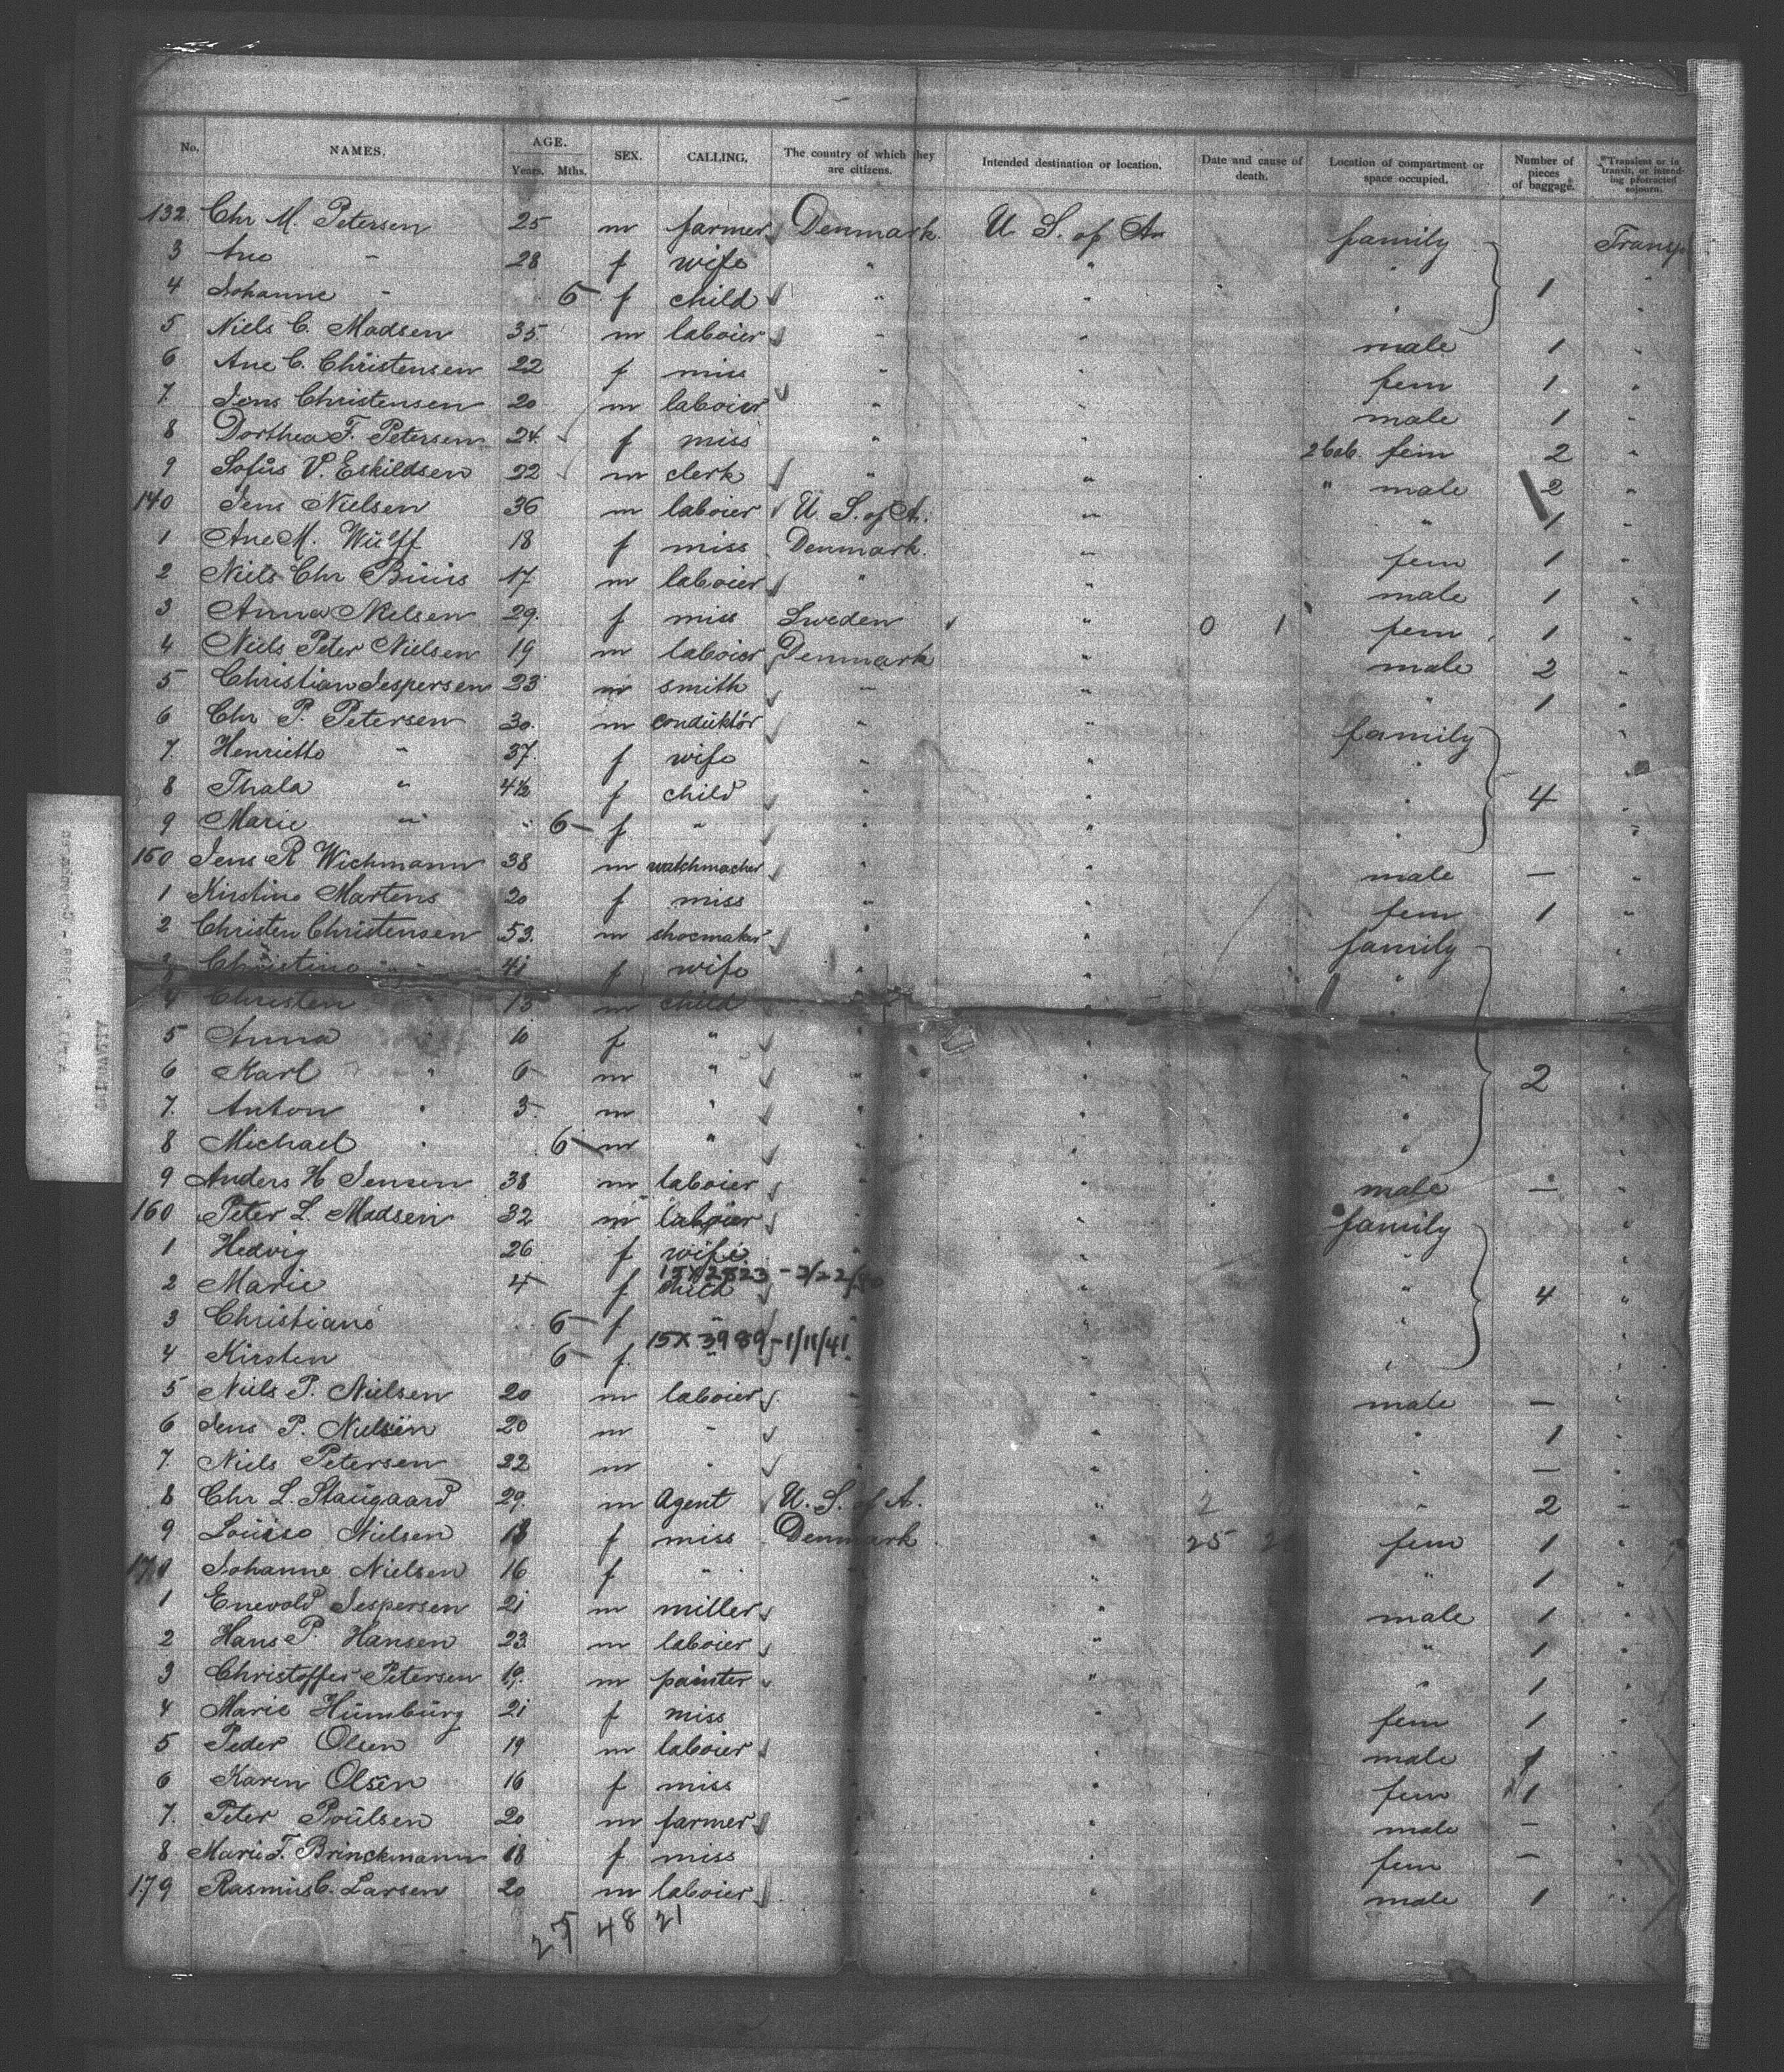 No. NAMES. AGE. Years. Mths. SEX. CALLING. The country of which they are citizens. Intended destination or location. Date and cause of death. Location of compartment or space occupied. Number of pieces of baggage. Transient or in transit, or intending protracted sojourn.
132 Chr M. Petersen 25 m farmer Denmark. U. S. of A. family
3 Ane " 28 f wife " "
4 Johanne " 6 f child " " " 1
5 Niels C. Madsen 35 m laboier " " male 1 "
6 Ane C. Christensen 22 f miss " " fem 1 "
7 Jens Christensen 20 m laboier " " male 1 "
8 Dorthea F. Petersen 24 f miss " " 2 cab. fem 2 "
9 Sofus V. Eskildsen 22 m clerk " " " male 2 "
140 Jens Nielsen 36 m laboier U. S. of A. " " 1 "
1 Ane M. Wulff 18 f miss Denmark. " fem 1 "
2 Niels Chr Buus 17 m laboier " " male 1 "
3 Anna Nielsen 29. f miss Sweden " 0 1 fem 1 "
4 Niels Peter Nielsen 19 m laboier Denmark " male 2 "
5 Christian Jespersen 23 m smith " " " 1 "
6 Chr P. Petersen 30. m conduktör " " family "
7. Henriette " 37. f wife " " "
8 Thala " 4½ f child " " " 4 "
9 Marie " 6 f " " " "
150 Jens R Wichmann 38 m watchmacher " " male — "
1 Kirstine Martens 20 f miss " " fem 1 "
2 Christen Christensen 53. m shoemaker " " family "
3 Christine " 41 f wife " " "
4 Christen " 13 m child " "
5 Anna " 10 f " " " "
6 Karl " 6 m " " " " 2 "
7. Anton " 3 m " " " " "
8 Michael " 6 m " " " " "
9 Anders H Jensen 38 m laboier " " male — "
160 Peter L. Madsen 32 m laboier " " family "
1 Hedvig 26 f wife " " " "
15X2523 - 2/22/
2 Marie 4 f child " " 4 "
3 Christiane 6 f " " " " "
15X 3989 - 1/11/41
4 Kirsten 6 f. " " " "
5 Niels P. Nielsen 20 m laboier " " male — "
6 Jens P. Nielsen 20 m " " " " 1 "
7. Niels Petersen 22 m " " " " — "
8 Chr L. Staugaard 29. m Agent U. S. of A. " 2 " 2 "
9 Louise Nielsen 18 f miss Denmark " 25 2 fem 1 "
170 Johanne Nielsen 16 f " " " 1 "
1 Enevold Jespersen 21 m miller " male 1 "
2 Hans P. Hansen 23 m laboier " " 1 "
3 Christoffer Petersen 19. m painter " " 1 "
4 Marie Humburg 21 f miss " fem 1 "
5 Peder Olsen 19 m laboier " male 1 "
6 Karen Olsen 16 f miss " fem 1 "
7. Peter Poulsen 20 m farmer " male —
8 Marie F. Brinckmann 18 f miss " fem —
179 Rasmus C. Larsen 20 m laboier " male 1
48 21